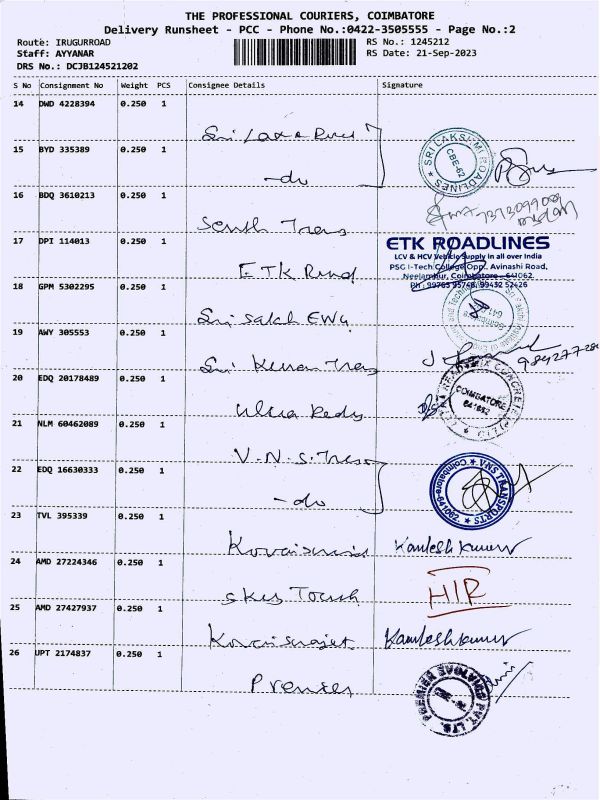 THE PROFESSIONAL COURIERS, COIMBATORE
Delivery Runsheet - PCC - Phone No.:0422-3505555 - Page No.:2
Route: IRUGURROAD RS No.: 1245212
Staff: AYYANAR RS Date: 21-Sep-2023
DRS No.: DCJB124521202
S No Consignment No Weight PCS Consignee Details Signature
14 DWD 4228394 0.250 1
SRI LAKSHMI ROADLINES CBE-62
15 BYD 335389 0.250 1
-do
16 BDQ 3610213 0.250 1
South Trans
17 DPI 114013 0.250 1
ETK ROADLINES
LCV & HCV Vehicle Supply in all over India
PSG I-Tech College Opp., Avinashi Road,
Neelambur, Coimbatore - 641062
Ph: 99765 95748, 99432 52426
ETK Road
18 GPM 5302295 0.250 1
Sri
19 AWY 305553 0.250 1
Sri Kumaran Trans
20 EDQ 20178489 0.250 1
COIMBATORE 641062
Ultra Ready
21 NLM 60462089 0.250 1
V.N.S. Trans
22 EDQ 16630333 0.250 1
VNS TRANSPORTS Coimbatore-641062.
-do
23 TVL 395339 0.250 1
Kamlesh Kumar
24 AMD 27224346 0.250 1
HIR
25 AMD 27427937 0.250 1
Kamlesh Kumar
26 UPT 2174837 0.250 1
Premier
PREMIER EVOLVICS PVT. LTD.